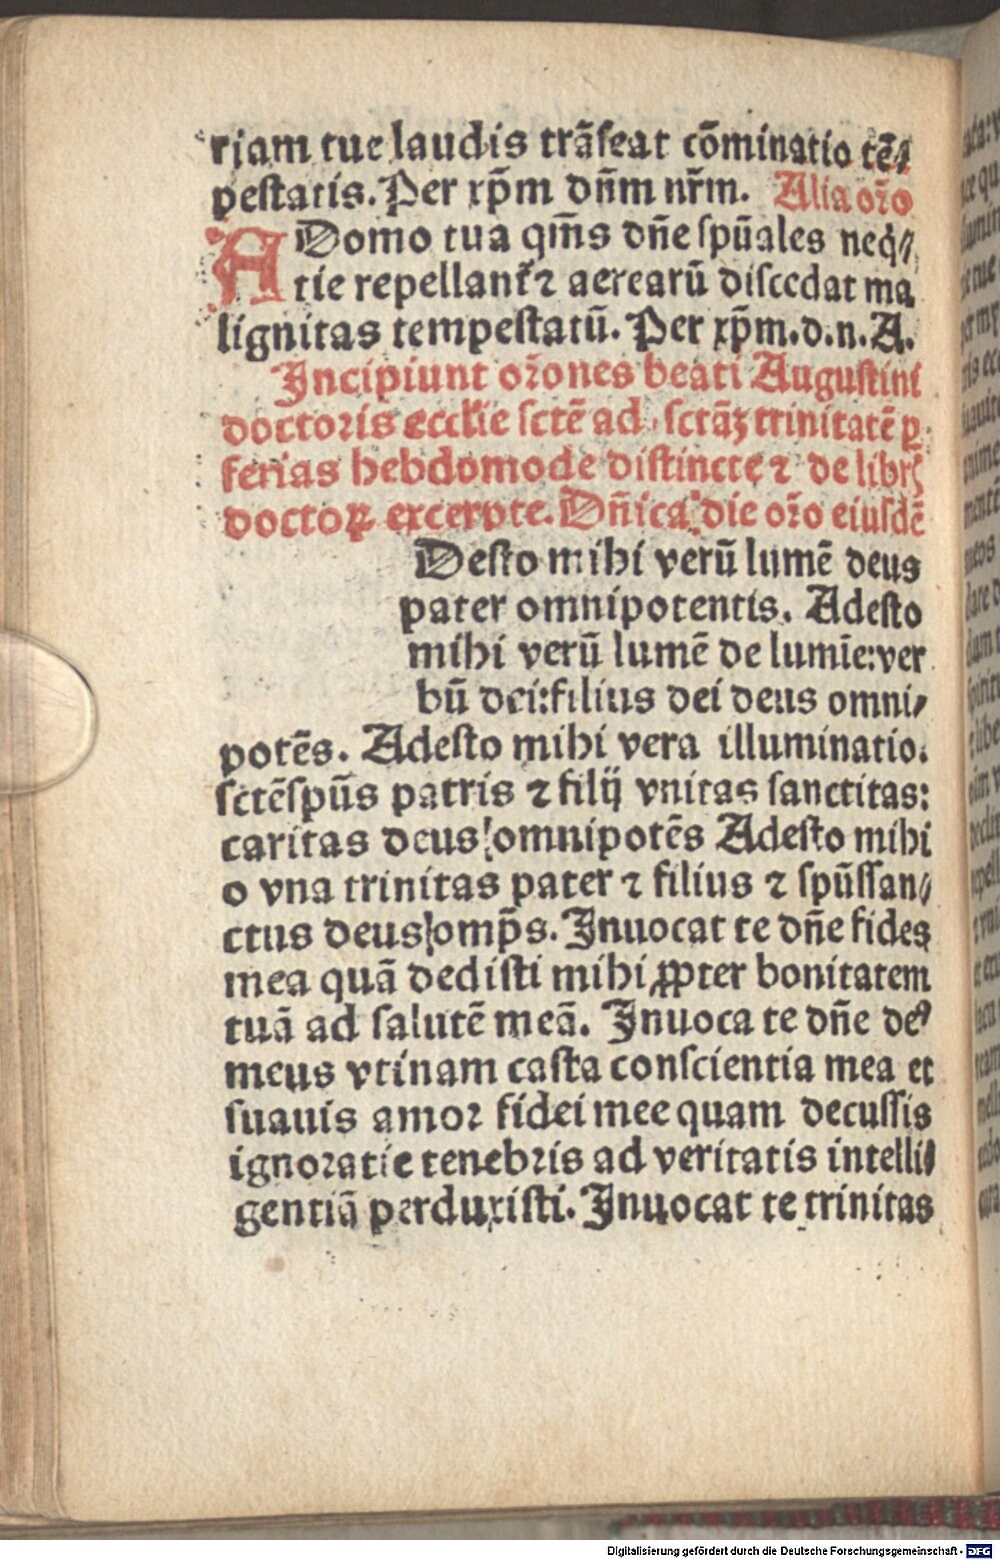 riam tue laudis trāſeat cōminatio tē⸗
peſtatis. Per xp̄m dn̄m nr̄m. Alia oꝛ̄o
A Domo tua qm̄s dn̄e ſpūales neq̇⸗
tie repellant᷑ ⁊ aerearū diſcedat ma
lignitas tempeſtatū. Per xp̄m.d.n.A.
Incipiunt oꝛ̄ones beati Auguſtini
doctoꝛis eccl̄ie ſctē ad ſctāꝫ trinitatē ꝑ
ferias hebdomode diſtincte ⁊ de libꝛꝭ
doctoꝝ excerpte. Dn̄ica die oꝛ̄o eiuſdē
Deſto mihi verū lumē deus
pater omnipotentis. Adeſto
mihi verū lumē de lumīe:ver
bū dei:filius dei deus omni⸗
potēs. Adeſto mihi vera illuminatio.
ſctēſpūs patris ⁊ filij vnitas ſanctitas:
caritas deus omnipotēs Adeſto mihi
o vna trinitas pater ⁊ filius ⁊ ſpūſſan⸗
ctus deus omp̄s. Inuocat te dn̄e fides
mea quā dediſti mihi ꝓpter bonitatem
tuā ad ſalutē meā. Inuoca te dn̄e deꝰ
meus vtinam caſta conſcientia mea et
ſuauis amoꝛ fidei mee quam decuſſis
ignoꝛatie tenebꝛis ad veritatis intelli⸗
gentiā perduxiſti. Inuocat te trinitas
Digitalisierung gefördert durch die Deutsche Forschungsgemeinschaft - DFG